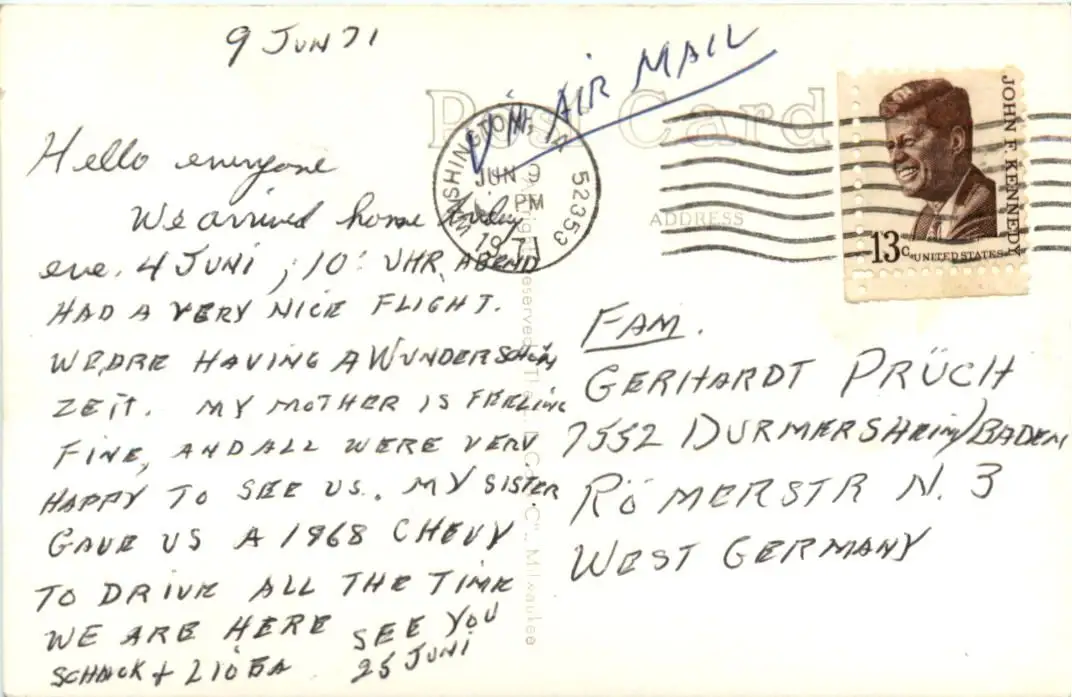 9 JUN 71
VIA AIR MAIL
Post Card
WASHINGTON, IA
52353
JUN 9
PM
1971
ADDRESS
JOHN F. KENNEDY
13c UNITED STATES
Hello everyone
We arrived home friday
eve. 4 JUNI, 10: UHR, ABEND
HAD A VERY NICE FLIGHT.
WE ARE HAVING A WUNDERSCHÖN
ZEIT. MY MOTHER IS FEELING
FINE, AND ALL WERE VERY
HAPPY TO SEE US. MY SISTER
GAVE US A 1968 CHEVY
TO DRIVE ALL THE TIME
WE ARE HERE SEE YOU
25 JUNI
+ LIOBA
FAM.
GERHARDT PRÜCH
7552 DURMERSHEIM/BADEN
RÖMERSTR N. 3
WEST GERMANY
Milwaukee